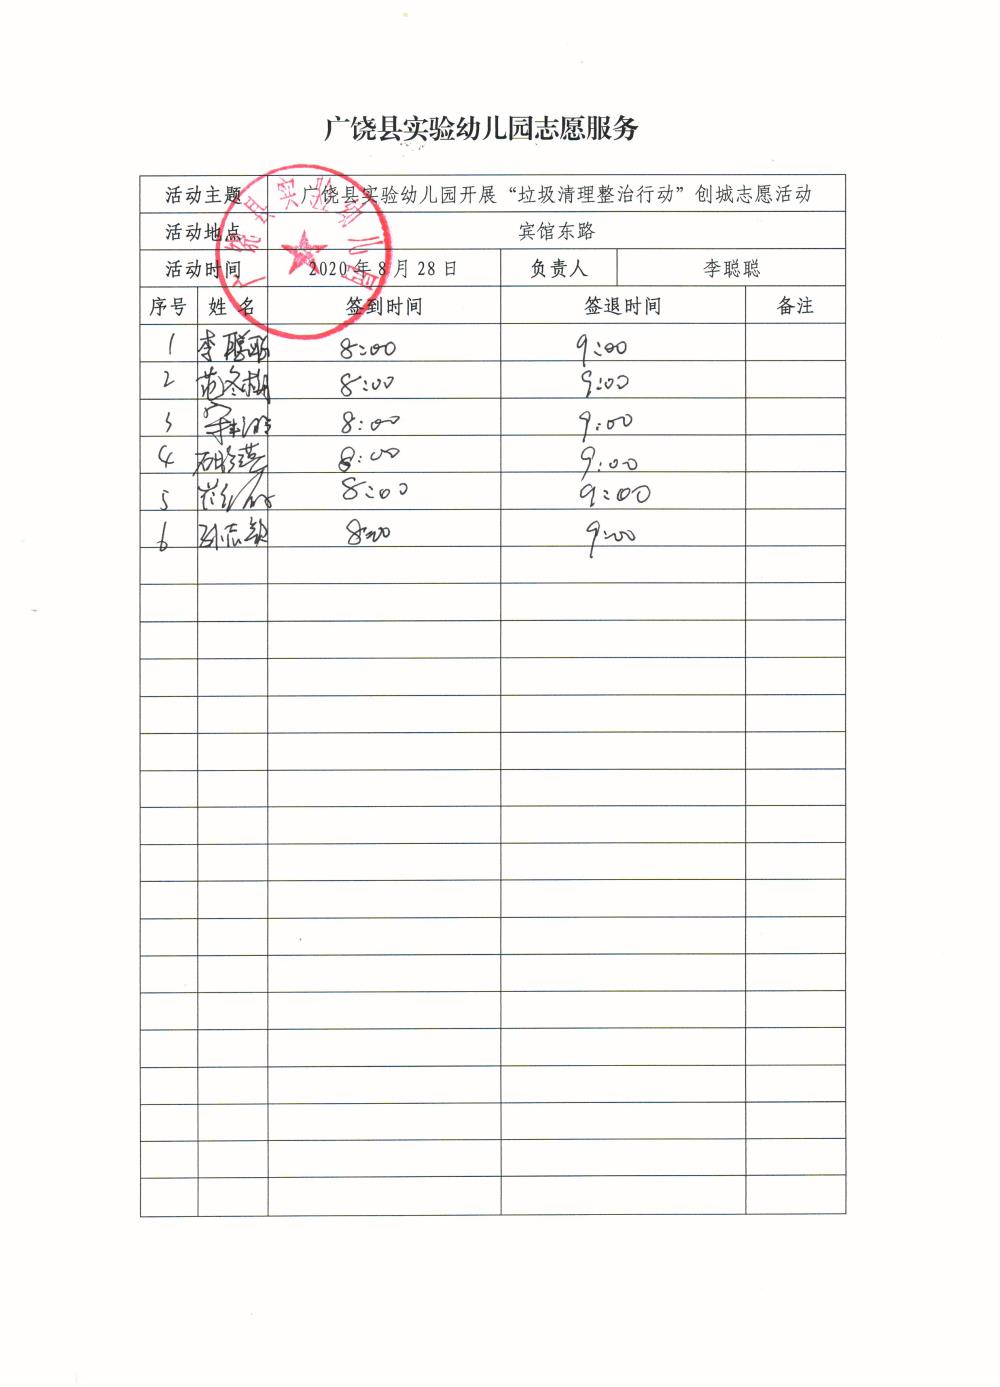 广饶县实验幼儿园志愿服务
活动主题 广饶县实验幼儿园开展“垃圾清理整治行动”创城志愿活动
活动地点 宾馆东路
活动时间 2020年8月28日 负责人 李聪聪
广饶县实验幼儿园
序号 姓 名 签到时间 签退时间 备注
1 李聪聪 8:00 9:00
2 8:00 9:00
3 8:00 9:00
4 8:00 9:00
5 8:00 9:00
6 孙志敏 8:00 9:00